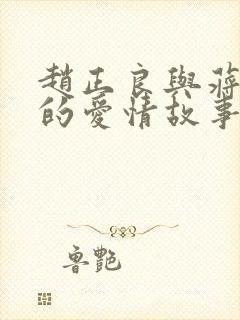 趙正良與蔣
的愛情故事
魯艷